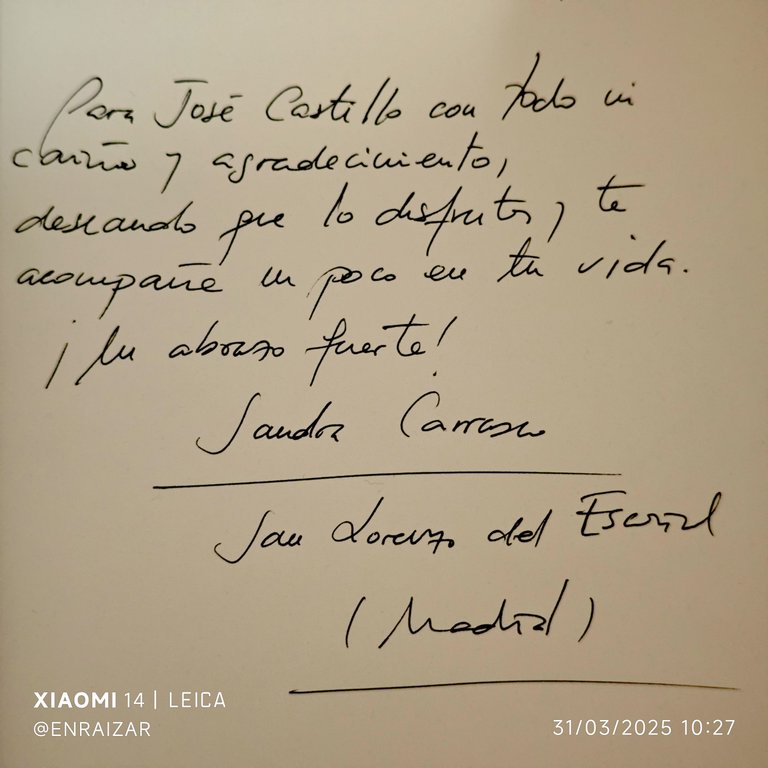 Para José Castillo con todo mi
cariño y agradecimiento,
deseando que lo disfrutes y te
acompañe un poco en tu vida.
¡Un abrazo fuerte!
Sandra Carrasco
San Lorenzo del Escorial
(Madrid)
XIAOMI 14 | LEICA
@ENRAIZAR
31/03/2025 10:27